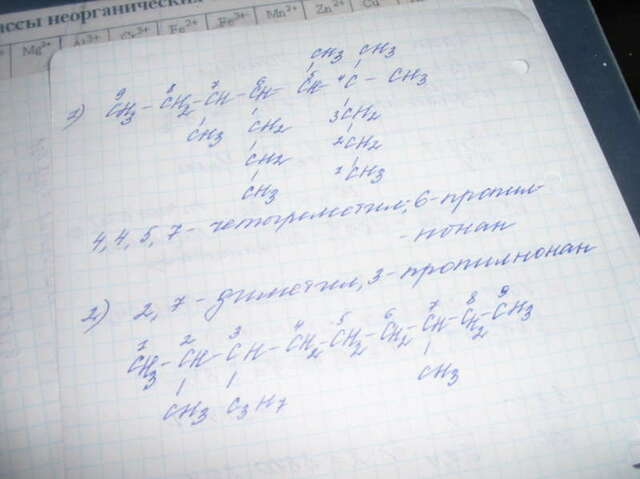 ассы неорганических
Mg²⁺ Al³⁺ Cr³⁺ Fe²⁺ Fe³⁺ Mn²⁺ Zn²⁺ Cu
CH3 CH3
1) 9CH3 - 8CH2 - 7CH - 6CH 5CH 4C - CH3
CH3 CH2 3CH2
CH2 2CH2
CH3 1CH3
4,4,5,7 - тетраметил, 6 - пропил-
- нонан
2) 2,7 - диметил, 3 - пропилнонан
1 2 3 4 5 6 7 8 9
CH3 - CH - CH - CH2 - CH2 - CH2 - CH - CH2 - CH3
CH3 C3H7 CH3